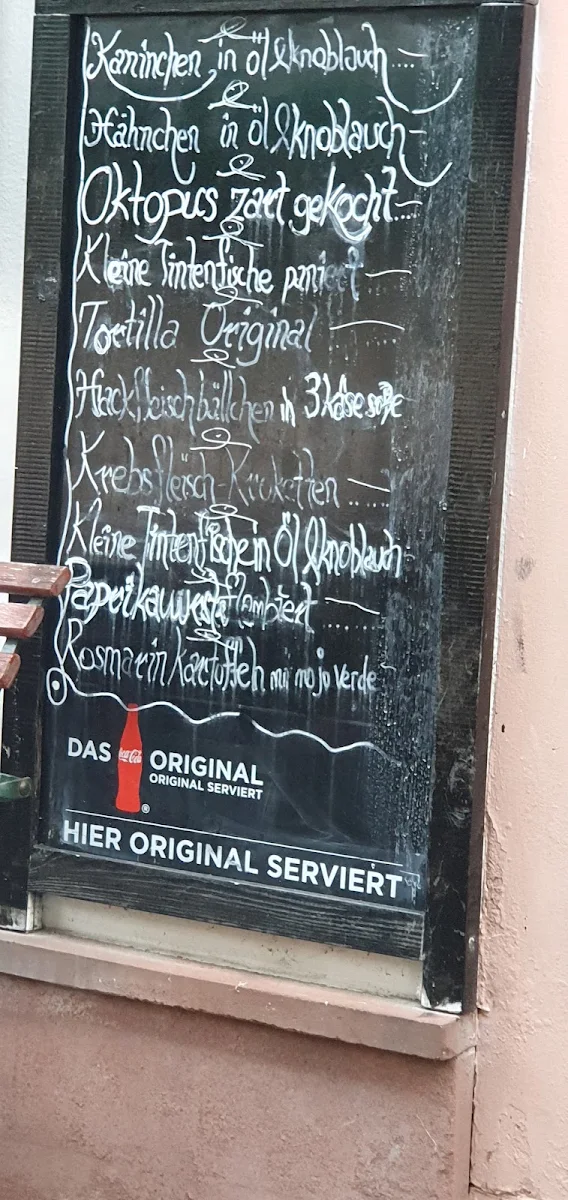 Kaninchen, in öl & knoblauch ....
Hähnchen in öl & knoblauch
Oktopus zart gekocht...
Kleine Tintenfische paniert
Tortilla Original
Hackfleischbällchen in 3 käse soße
Krebsfleisch-Kroketten
Kleine Tintenfische in Öl & knoblauch
Paprikawurst flambiert
Rosmarin kartoffeln mit mojo verde
DAS Coca-Cola ORIGINAL
ORIGINAL SERVIERT
HIER ORIGINAL SERVIERT